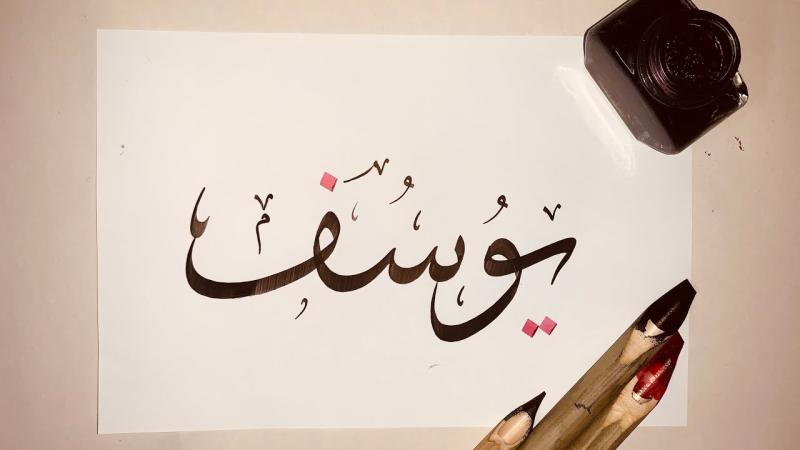 يُوسُف